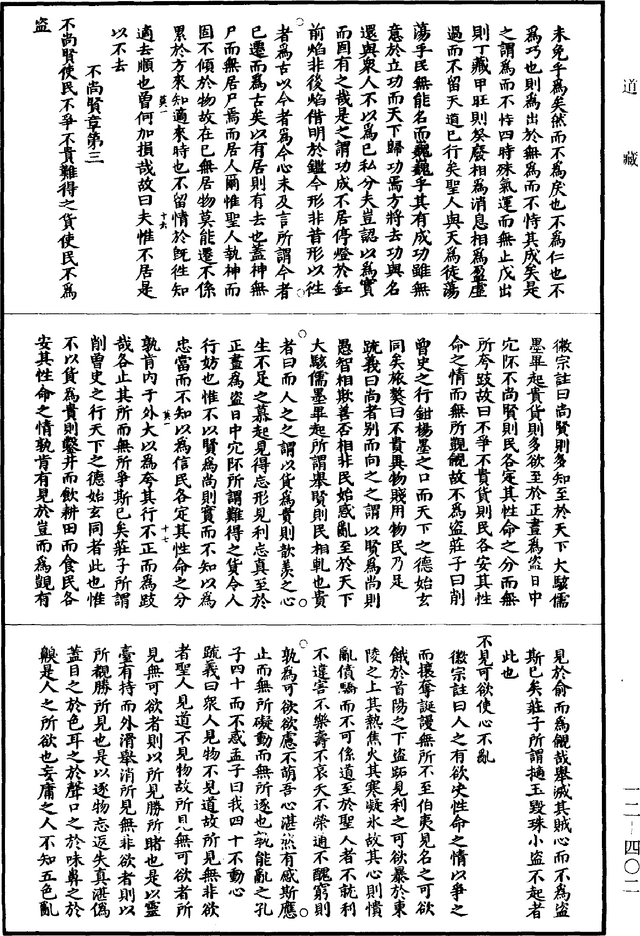 道藏
未免乎為矣然而不為戾也不為仁也不
為巧也則為出於無為而不恃其成矣是
之謂為而不恃四時殊氣運而無止戊出
則丁藏甲旺則癸廢相為消息相為盈虛
過而不留天道已行矣聖人與天為徒蕩
蕩乎民無能名而巍巍乎其有成功雖無
意於立功而天下歸功焉方將去功與名
還與衆人不以為己私分夫豈認以為實
而固有之哉是之謂功成不居停燈於缸
前焰非後焰借明於鑑今形非昔形以往
者為古以今者為今心未及言所謂今者
已遷而為古矣以有居則有去也蓋神無
尸而無居尸焉而居人爾惟聖人執神而
固不傾於物故在己無居物莫能遷不係
累於方來知適來時也不留情於旣往知
適去順也曾何加損哉故曰夫惟不居是
以不去
不尚賢章第三
不尚賢使民不爭不貴難得之貨使民不為
盜
徽宗註曰尚賢則多知至於天下大駭儒
墨畢起貴貨則多欲至於正晝為盜日中
穴阫不尚賢則民各定其性命之分而無
所夸跂故曰不爭不貴貨則民各安其性
命之情而無所覬覦故不為盜莊子曰削
曾史之行鉗楊墨之口而天下之德始玄
同矣旅獒曰不貴異物賤用物民乃足
疏義曰尚者别而向之之謂以賢為尚則
愚智相欺善否相非民始惑亂至於天下
大駭儒墨畢起所謂舉賢則民相軋也貴
者曰而人之之謂以貨為貴則歆羨之心
生不足之慕起見得忘形見利忘真至於
正晝為盜日中穴阫所謂難得之貨令人
行妨也惟不以賢為尚則實而不知以為
忠當而不知以為信民各定其性命之分
孰肯內于外大以為夸其行不正而為跂
哉各止其所而無所爭斯已矣莊子所謂
削曾史之行天下之德始玄同者此也惟
不以貨為貴則鑿井而飲耕田而食民各
安其性命之情孰肯有見於豈而為覬有
見於俞而為覦哉舉滅其賊心而不為盜
斯已矣莊子所謂擿玉毀珠小盜不起者
此也
不見可欲使心不亂
徽宗註曰人之有欲決性命之情以爭之
而攘奪誕謾無所不至伯夷見名之可欲
餓於首陽之下盜跖見利之可欲暴於東
陵之上其熱焦火其寒凝氷故其心則憒
亂僨驕而不可係道至於聖人者不就利
不違害不樂壽不哀夭不榮通不醜窮則
孰為可欲欲慮不萌吾心湛然有感斯應
止而無所礙動而無所逐也孰能亂之孔
子四十而不惑孟子曰我四十不動心
疏義曰衆人見物不見道故所見無非欲
者聖人見道不見物故所見無可欲者所
見無可欲者則以所見勝所睹也是以靈
臺有持而外滑舉消所見無非欲者則以
所觀勝所見也是以逐物忘返失真湛僞
蓋目之於色耳之於聲口之於味鼻之於
臭是人之所欲也妄庸之人不知五色亂
英一 十六
英一 十七
一一-四〇二